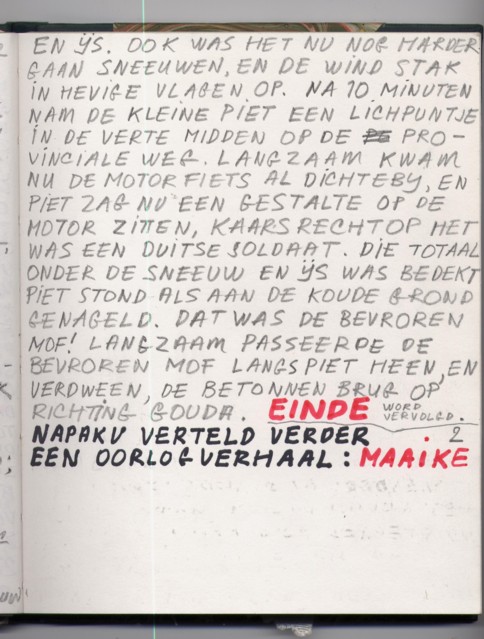 EN IJS. OOK WAS HET NU NOG HARDER
GAAN SNEEUWEN, EN DE WIND STAK
IN HEVIGE VLAGEN OP. NA 10 MINUTEN
NAM DE KLEINE PIET EEN LICHPUNTJE
IN DE VERTE MIDDEN OP DE PRO-
VINCIALE WEG. LANGZAAM KWAM
NU DE MOTORFIETS AL DICHTEBY, EN
PIET ZAG NU EEN GESTALTE OP DE
MOTOR ZITTEN, KAARSRECHTOP HET
WAS EEN DUITSE SOLDAAT. DIE TOTAAL
ONDER DE SNEEUW EN IJS WAS BEDEKT
PIET STOND ALS AAN DE KOUDE GROND
GENAGELD. DAT WAS DE BEVROREN
MOF! LANGZAAM PASSEERDE DE
BEVROREN MOF LANGS PIET HEEN, EN
VERDWEEN, DE BETONNEN BRUG OP
RICHTING GOUDA. EINDE WORD VERVOLGD.
NAPAKU VERTELD VERDER 2
EEN OORLOGVERHAAL: MAAIKE